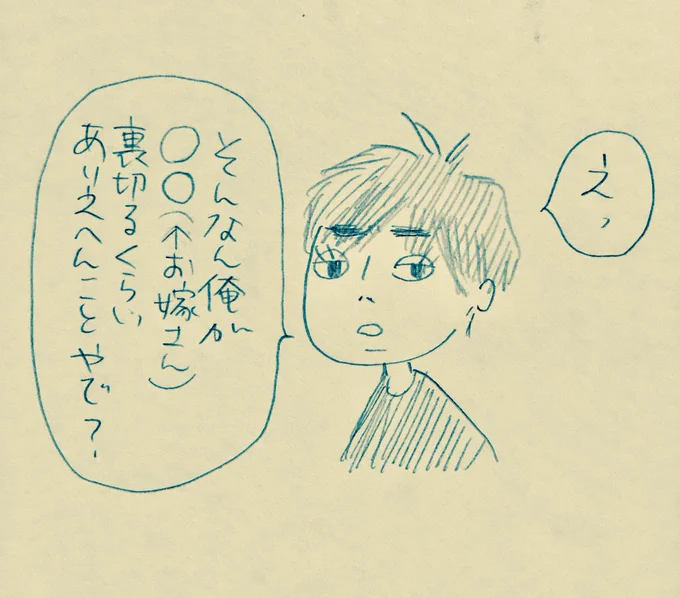 えっ
そんなん俺が
○○(↑お嫁さん)
裏切るくらい
ありえへんことやで?